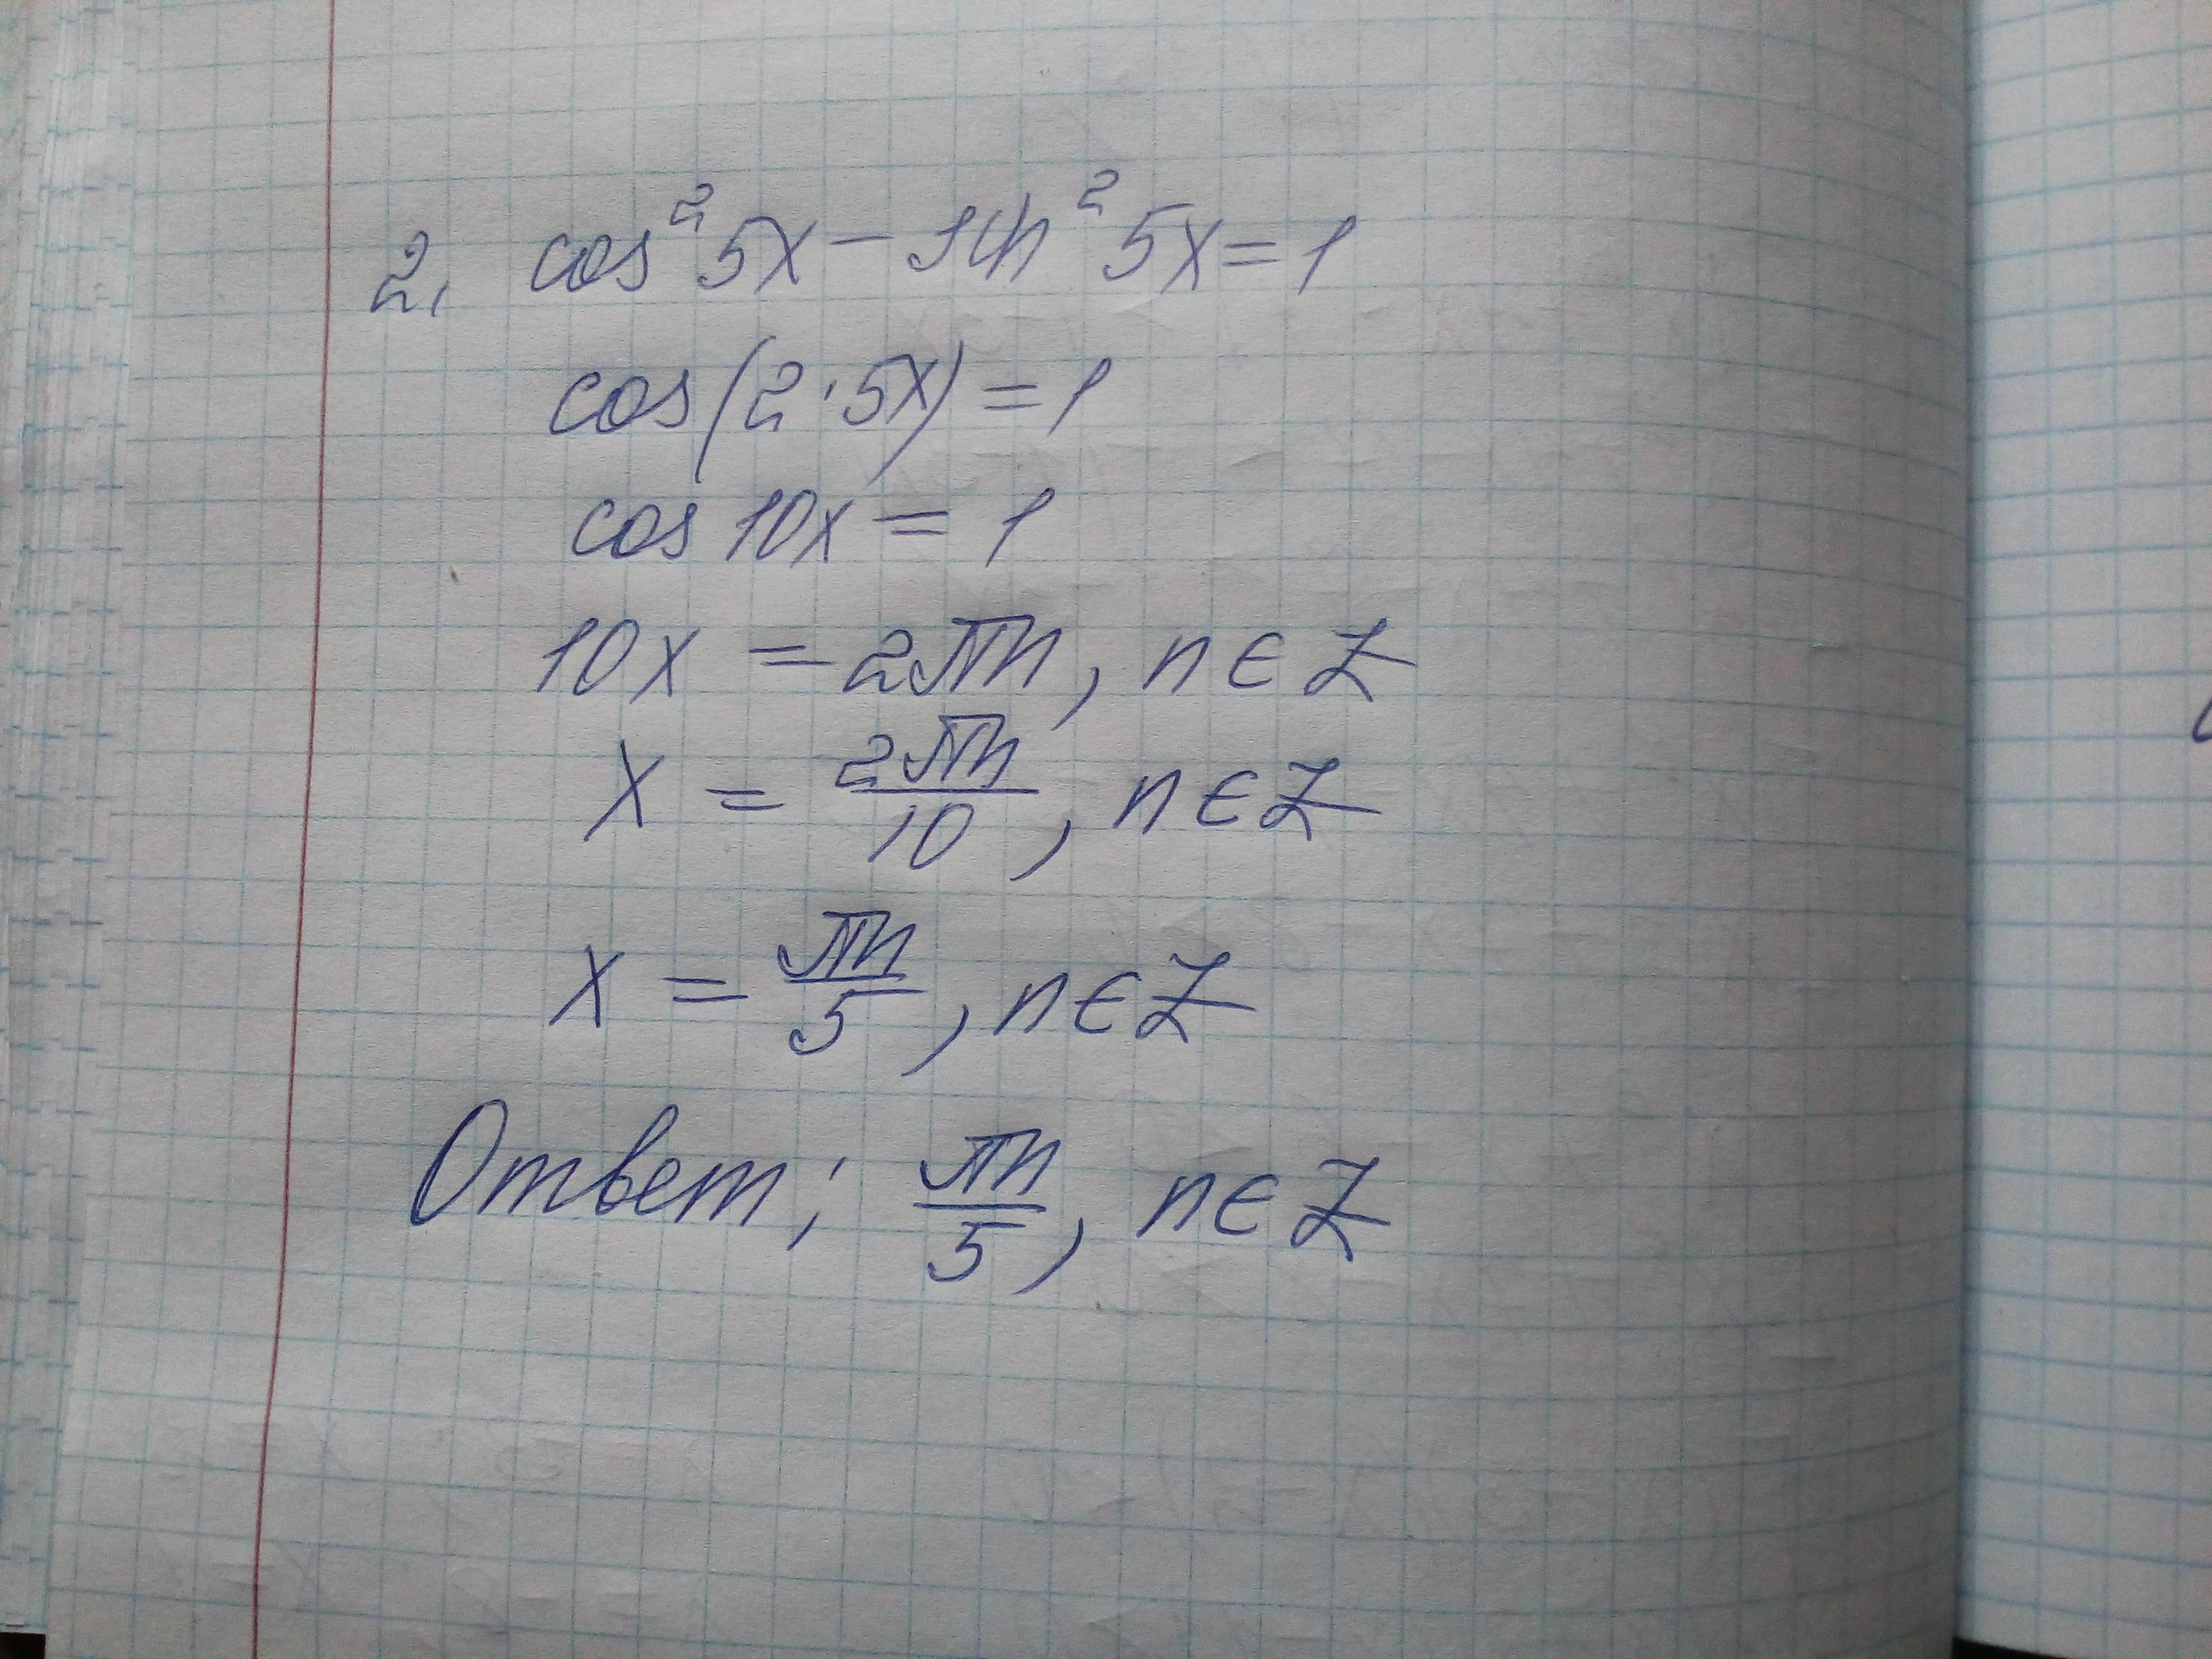 2. cos²5x – sin²5x = 1
cos(2·5x) = 1
cos 10x = 1
10x = 2πn, n ∈ Z
x = 2πn/10, n ∈ Z
x = πn/5, n ∈ Z
Ответ: πn/5, n ∈ Z